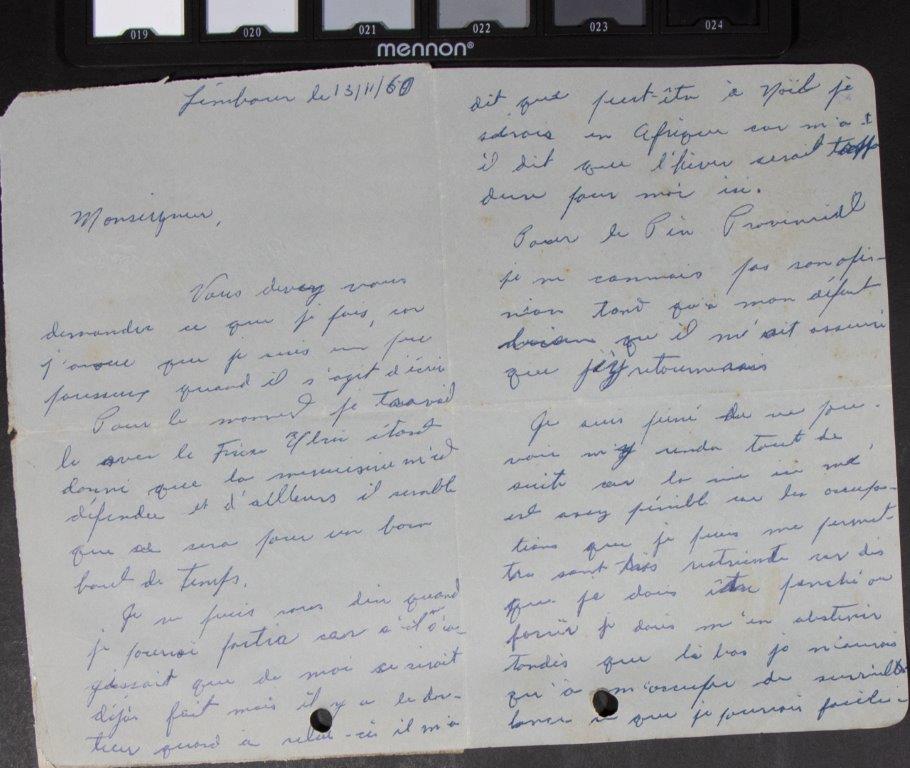 019 020 021 022 023 024
mennon®
Limbour le 13/11/60
Monseigneur,
Vous devez vous
demander ce que je fais, car
j'avoue que je suis un peu
paresseux quand il s'agit d'écrire
Pour le moment je travail
le avec le Frère étant
donné que la menuiserie m'est
défendue et d'ailleurs il semble
que se sera pour un bon
bout de temps.
Je ne puis vous dire quand
je pourrai partir car s'il n'a-
gissait que de moi se serait
déjà fait mais il y a le doc-
teur quand à celui-ci il m'a
dit que peut-être à Noël je
serais en Afrique car m'a t
il dit que l'hiver serait
dure pour moi ici.
Pour le Père Provincial
je ne connais pas son opi-
nion tant qu'à mon départ
qu'il m'ait assuré
que j'y retournerais
Je suis peiné de ne pou-
voir m'y rendre tout de
suite car la vie ici me
est assez pénible car les occupa-
tions que je puis me permet
tre sont très restreinte car dès
que je dois être penché ou
forcir je dois m'en abstenir
tandis que là bas je n'aurais
qu'à m'occuper de surveil
lance que je pourrais facile-